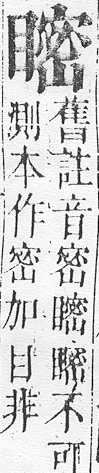 舊註音密不可
測本作密加目非